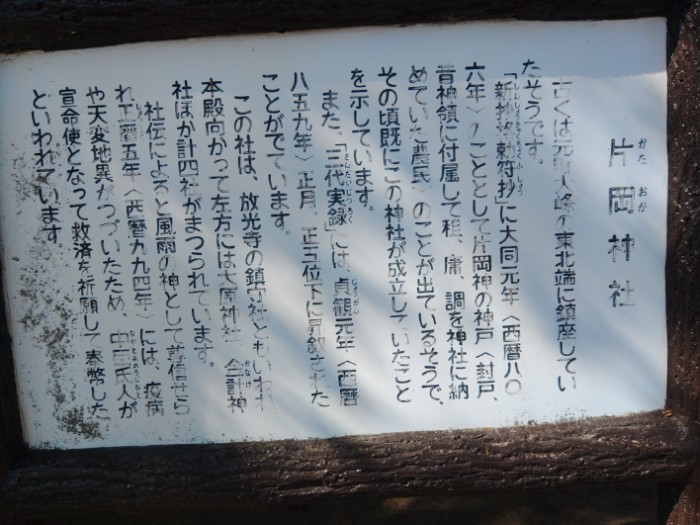 片岡神社
かた おか
古くは元 人峰の東北端に鎮座してい
たそうです。
「新抄格勅符抄」に大同元年〈西暦八〇
六年〉のこととして片岡神の神戸〈封戸、
昔神領に付属して租、庸、調を神社に納
めていた農民〉のことが出ているそうで、
その頃既にこの神社が成立していたこと
を示しています。
また、「三代実録」には、貞観元年〈西暦
八五九年〉正月、正三位下に昇叙された
ことがでています。
この社は、放光寺の鎮守社ともいわれ
本殿向かって左方には大原神社、金計神
社ほか計四社がまつられています。
社伝によると風雨の神として尊信せら
れ正暦五年〈西暦九九四年〉には、疫病
や天変地異がつづいたため、中臣氏人が
宣命使となって救済を祈願して奉幣した
といわれています。